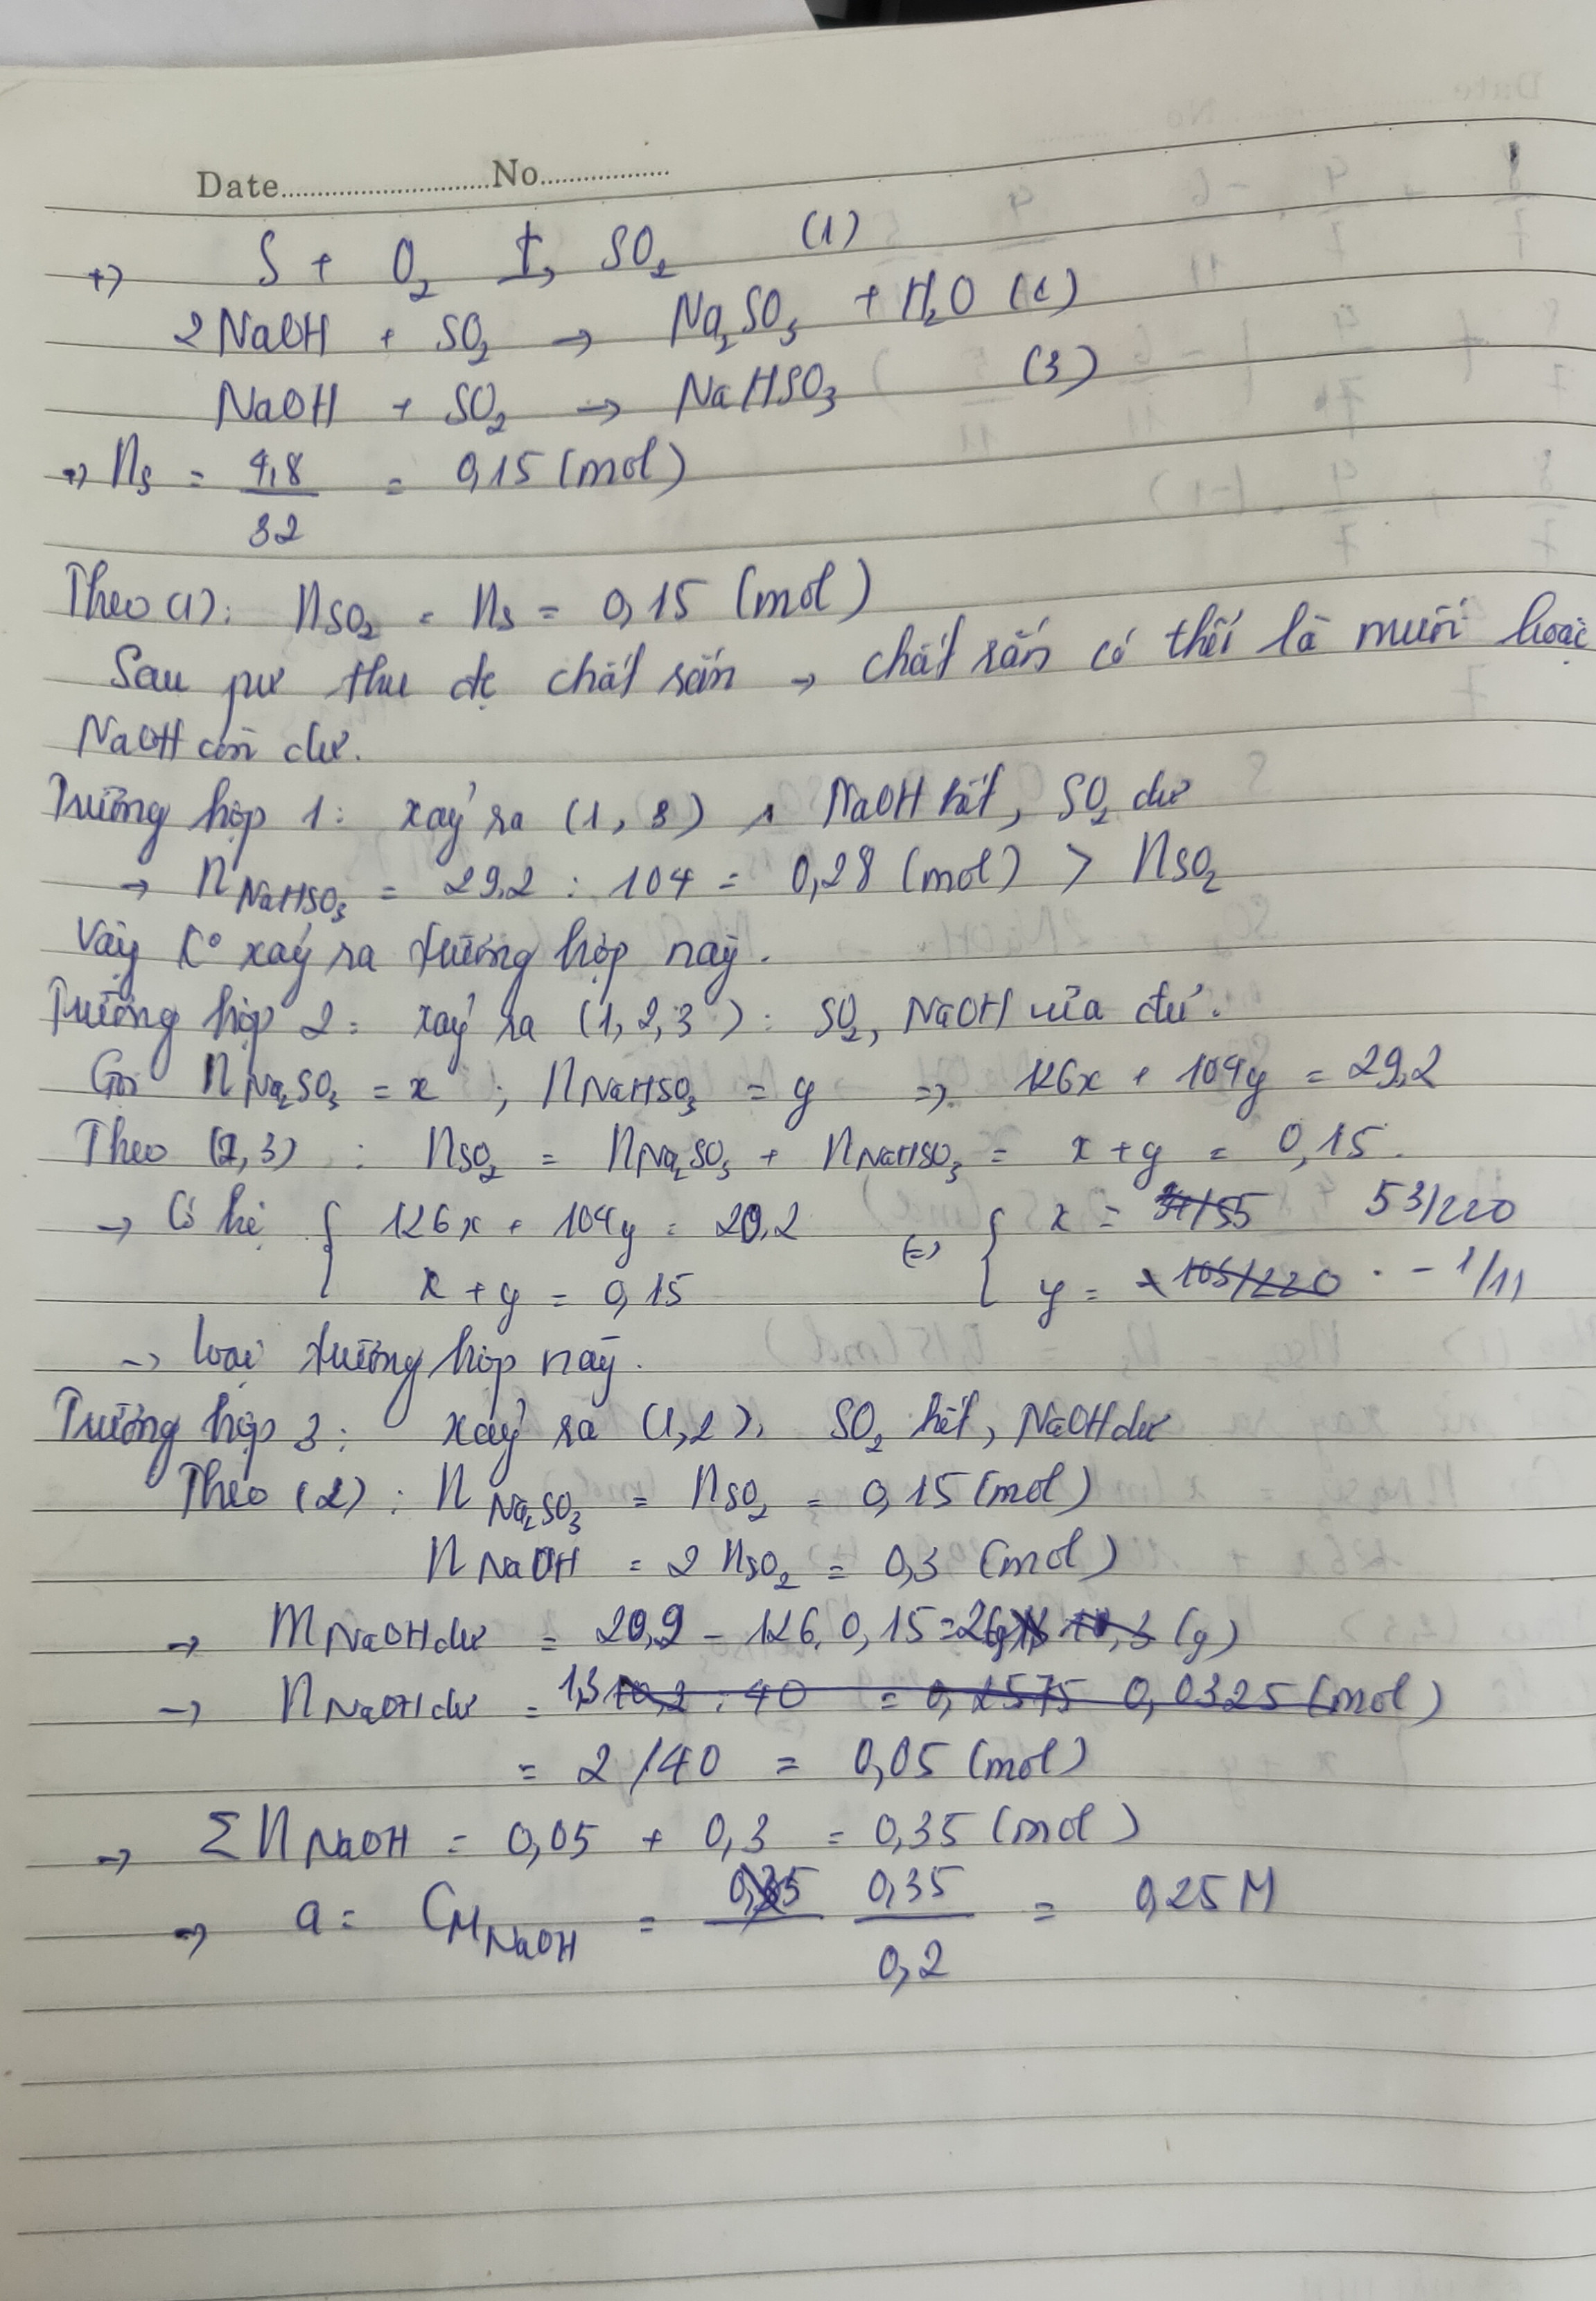 Date..............................No...................
+) S + O₂ t°→ SO₂ (1)
2NaOH + SO₂ → Na₂SO₃ + H₂O (2)
NaOH + SO₂ → NaHSO₃ (3)
+) nS = 4,8/32 = 0,15 (mol)
Theo (1): nSO₂ = nS = 0,15 (mol)
Sau pư thu đc chất rắn → chất rắn có thể là muối hoặc
NaOH còn dư.
Trường hợp 1: xảy ra (1, 3), NaOH hết, SO₂ dư
→ nNaHSO₃ = 29,2 : 104 = 0,28 (mol) > nSO₂
Vậy k° xảy ra trường hợp này.
Trường hợp 2: xảy ra (1, 2, 3): SO₂, NaOH vừa đủ.
Gọi nNa₂SO₃ = x ; nNaHSO₃ = y => 126x + 104y = 29,2
Theo (2,3) : nSO₂ = nNa₂SO₃ + nNaHSO₃ = x + y = 0,15.
→ Có hệ { 126x + 104y = 20,2 (=) { x = 53/220
x + y = 0,15 y = - 1/11
→ loại trường hợp này.
Trường hợp 3: xảy ra (1,2), SO₂ hết, NaOH dư
Theo (2): nNa₂SO₃ = nSO₂ = 0,15 (mol)
nNaOH = 2 nSO₂ = 0,3 (mol)
→ mNaOH dư = 20,9 - 126. 0,15 = 2 (g)
→ nNaOH dư =
= 2/40 = 0,05 (mol)
→ ΣnNaOH = 0,05 + 0,3 = 0,35 (mol)
→ a = CMNaOH = 0,35/0,2 = 0,25M